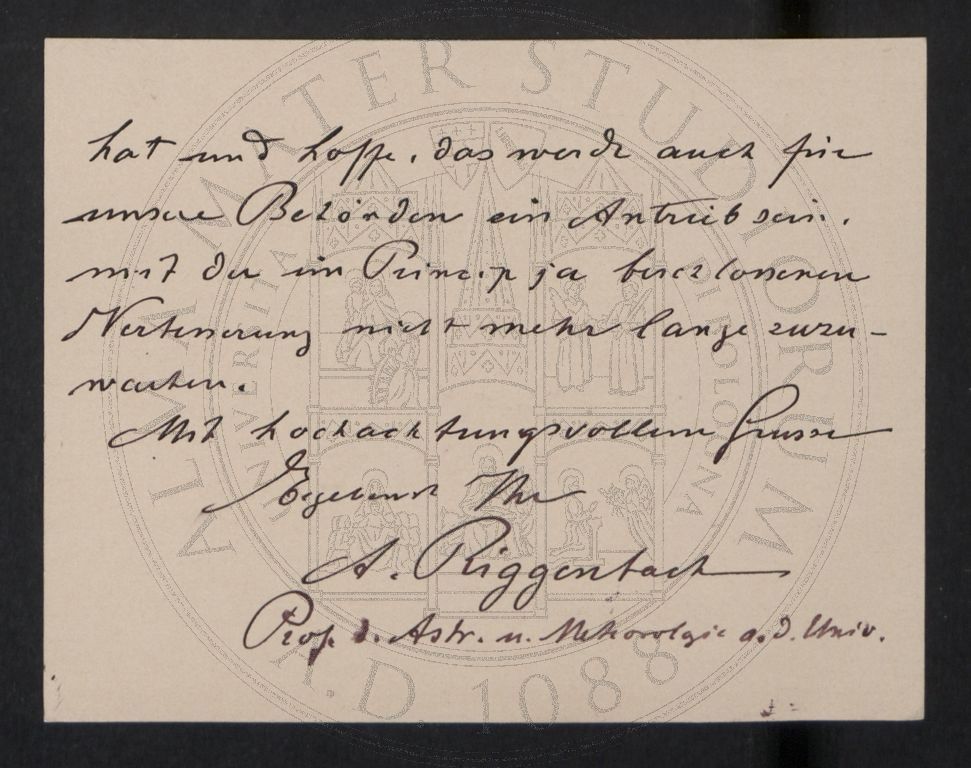 hat und hoffe, das werde auch für
unsere Behörden ein Antrieb sein,
mit der im Princip ja beschlossenen
Verbesserung nicht mehr lange zuzu-
warten.
Mit hochachtungsvollem Grusse
Ergebenst Ihr
A. Riggenbach
Prof. d. Astr. u. Meteorolgie a. d. Univ.
ALMA MATER STUDIORUM
UNIVERSITÀ DI BOLOGNA
A.D 1088